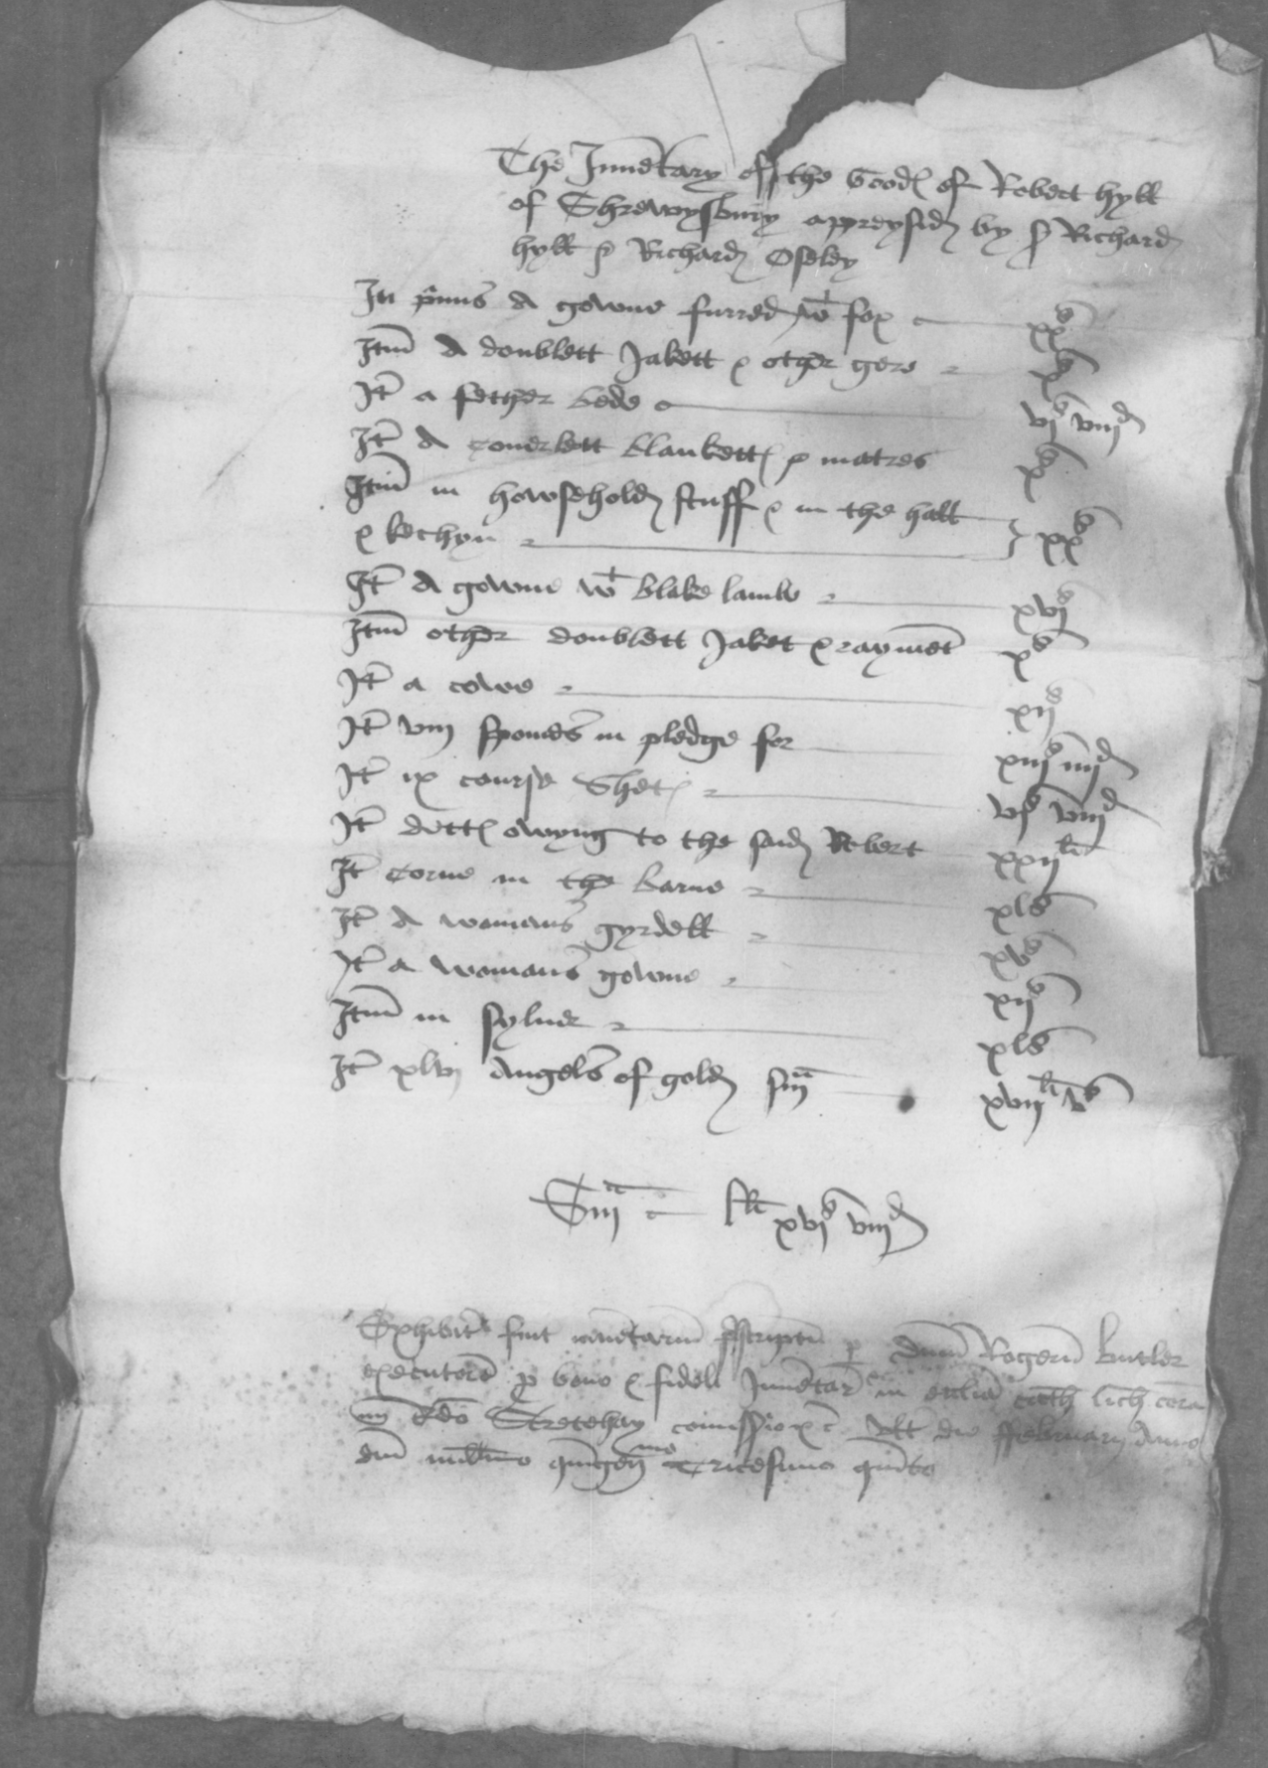 The Inue͞tary off the Goodꝭ of Robert hyll
of Shrewysbury appreysid by Richard
hyll Richard Oseley
Itm̅ p̅mis A gowne furred wt fox xxs
Itm̅ A doublett Jakett & other gere xs
It̅ a fether bede vis viijd
It̅ A couerlett blankettꝭ & matres xs
Itm̅ in howsehold stuff & in the hall
& kechyn xxs
It̅ A gowne wt blake lambe xvjs
Itm̅ other doublett Jaket & raymet̅ xs
It̅ a cowe xijs
It̅ viij spones in pledge for xiijs iiijd
It̅ ix course Shetꝭ vjs viijd
It̅ dettꝭ owyng to the said Robert xxijli
It̅ corne in the barne xls
It̅ A womans gyrdell xvs
It̅ a womans gowne xijs
Itm̅ in syluer xls
It̅ xlvj Angels of gold sma xvijli vs
Sma lli xvjs viijd
Exhibit̅ fuit inue͞tarium p̅scriptu̅ p̱ dnm̅ Rogeru̅ butler
executore̅ pro bono & fideli Inue͞tar̅ in eccl̅ia cath̅ lich̅ cora̅
Stretehay die ffebruarij Anno
dni̅ mill̅mo qui̅gen̅mo Tricesimo qui̅to